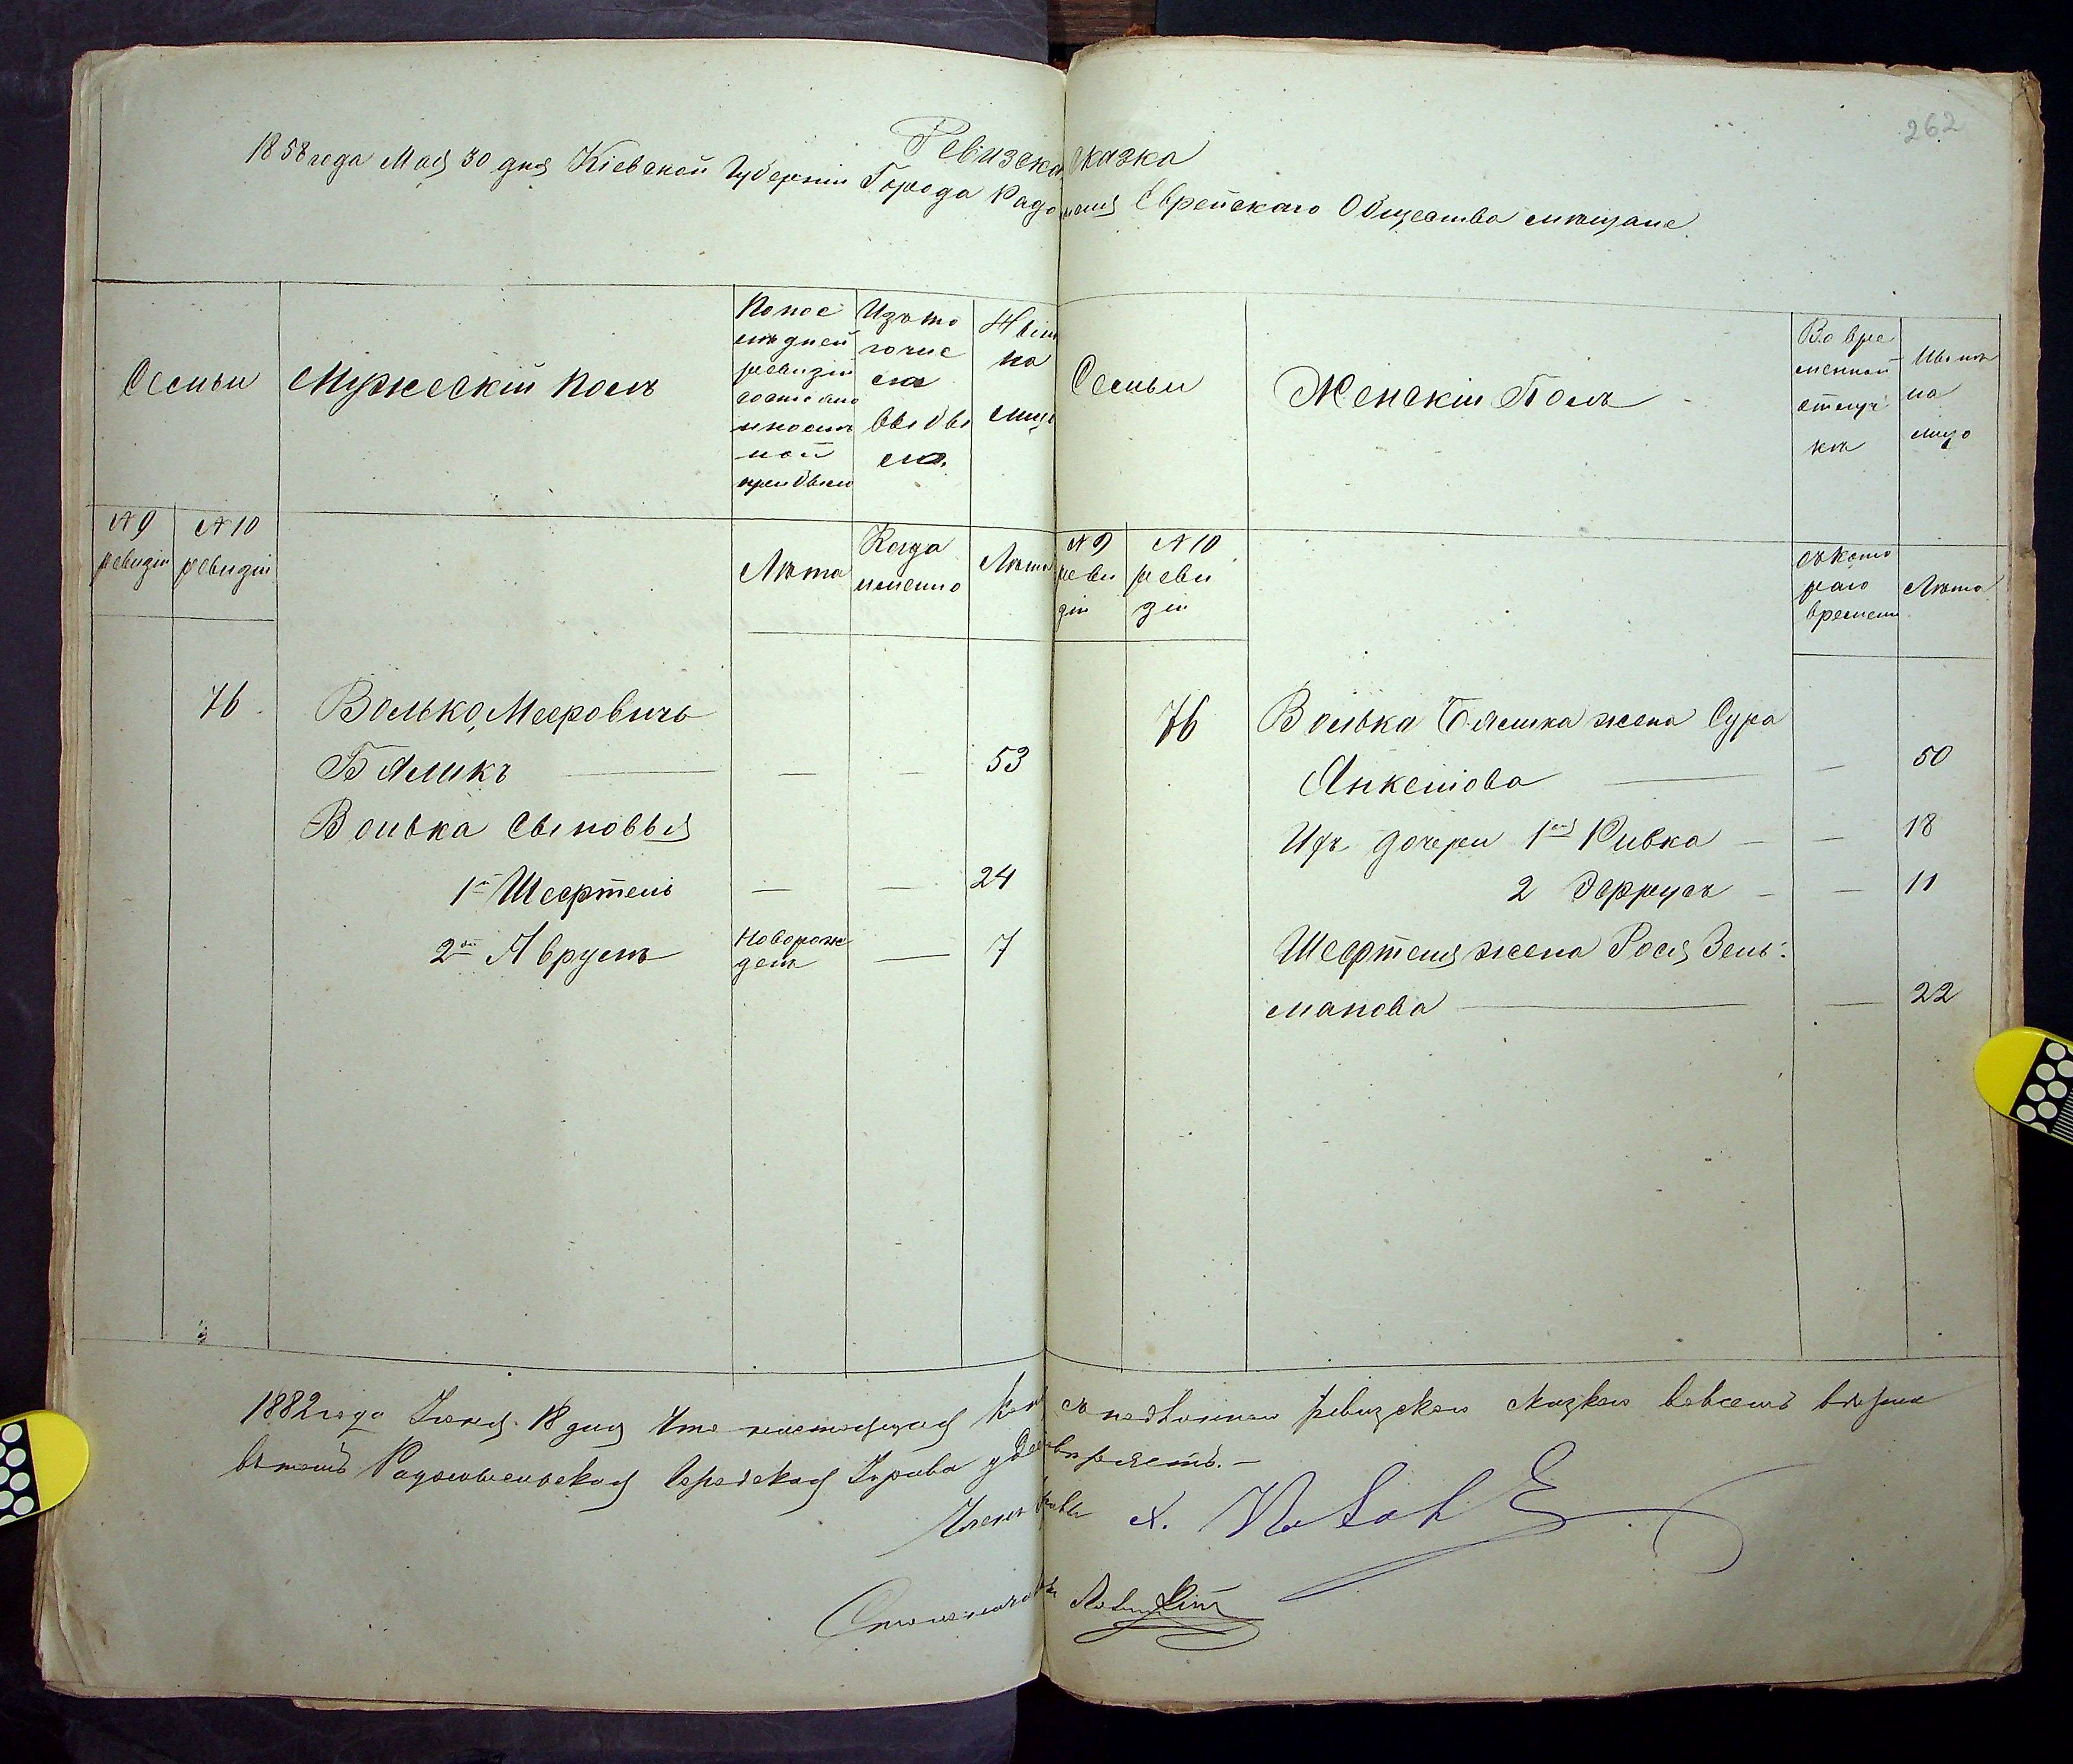 262
Ревизская Сказка
1858 года Мая 30 дня Кіевской Губерніи Города Радомысля Еврейскаго Общества мѣщане
Семьи
Мужескій полъ
По послѣдней ревизіи состояло и после оной прибыло
Изъ того числа выбыло
Нынѣ на лицо
№ 9 ревизіи
№ 10 ревизіи
Лѣта
Когда именно
Лѣта
76
Волько Мееровичъ
Бяликъ — — — 53
Волька Сыновья
1й Шефтель — — 24
2ой Аврумъ Новорожденъ — 7
Семьи
Женскій Полъ
Во временной отлучкѣ
Нынѣ на лицо
№ 9 ревизіи
№ 10 ревизіи
съ котораго времени
Лѣта
76
Волька Бялика жена Сура
Янкелова — — 50
Ихъ дочери 1ая Ривка — — 18
2 — — 11
Шефтеля жена Рося Зельманова — — 22
1882 года Іюня 18 дня Что настоящая копія съ подлинною ревизскою сказкою вовсемъ вѣрна
въ томъ Радомысльская Городская Управа удостовѣряетъ. —
Членъ Управы